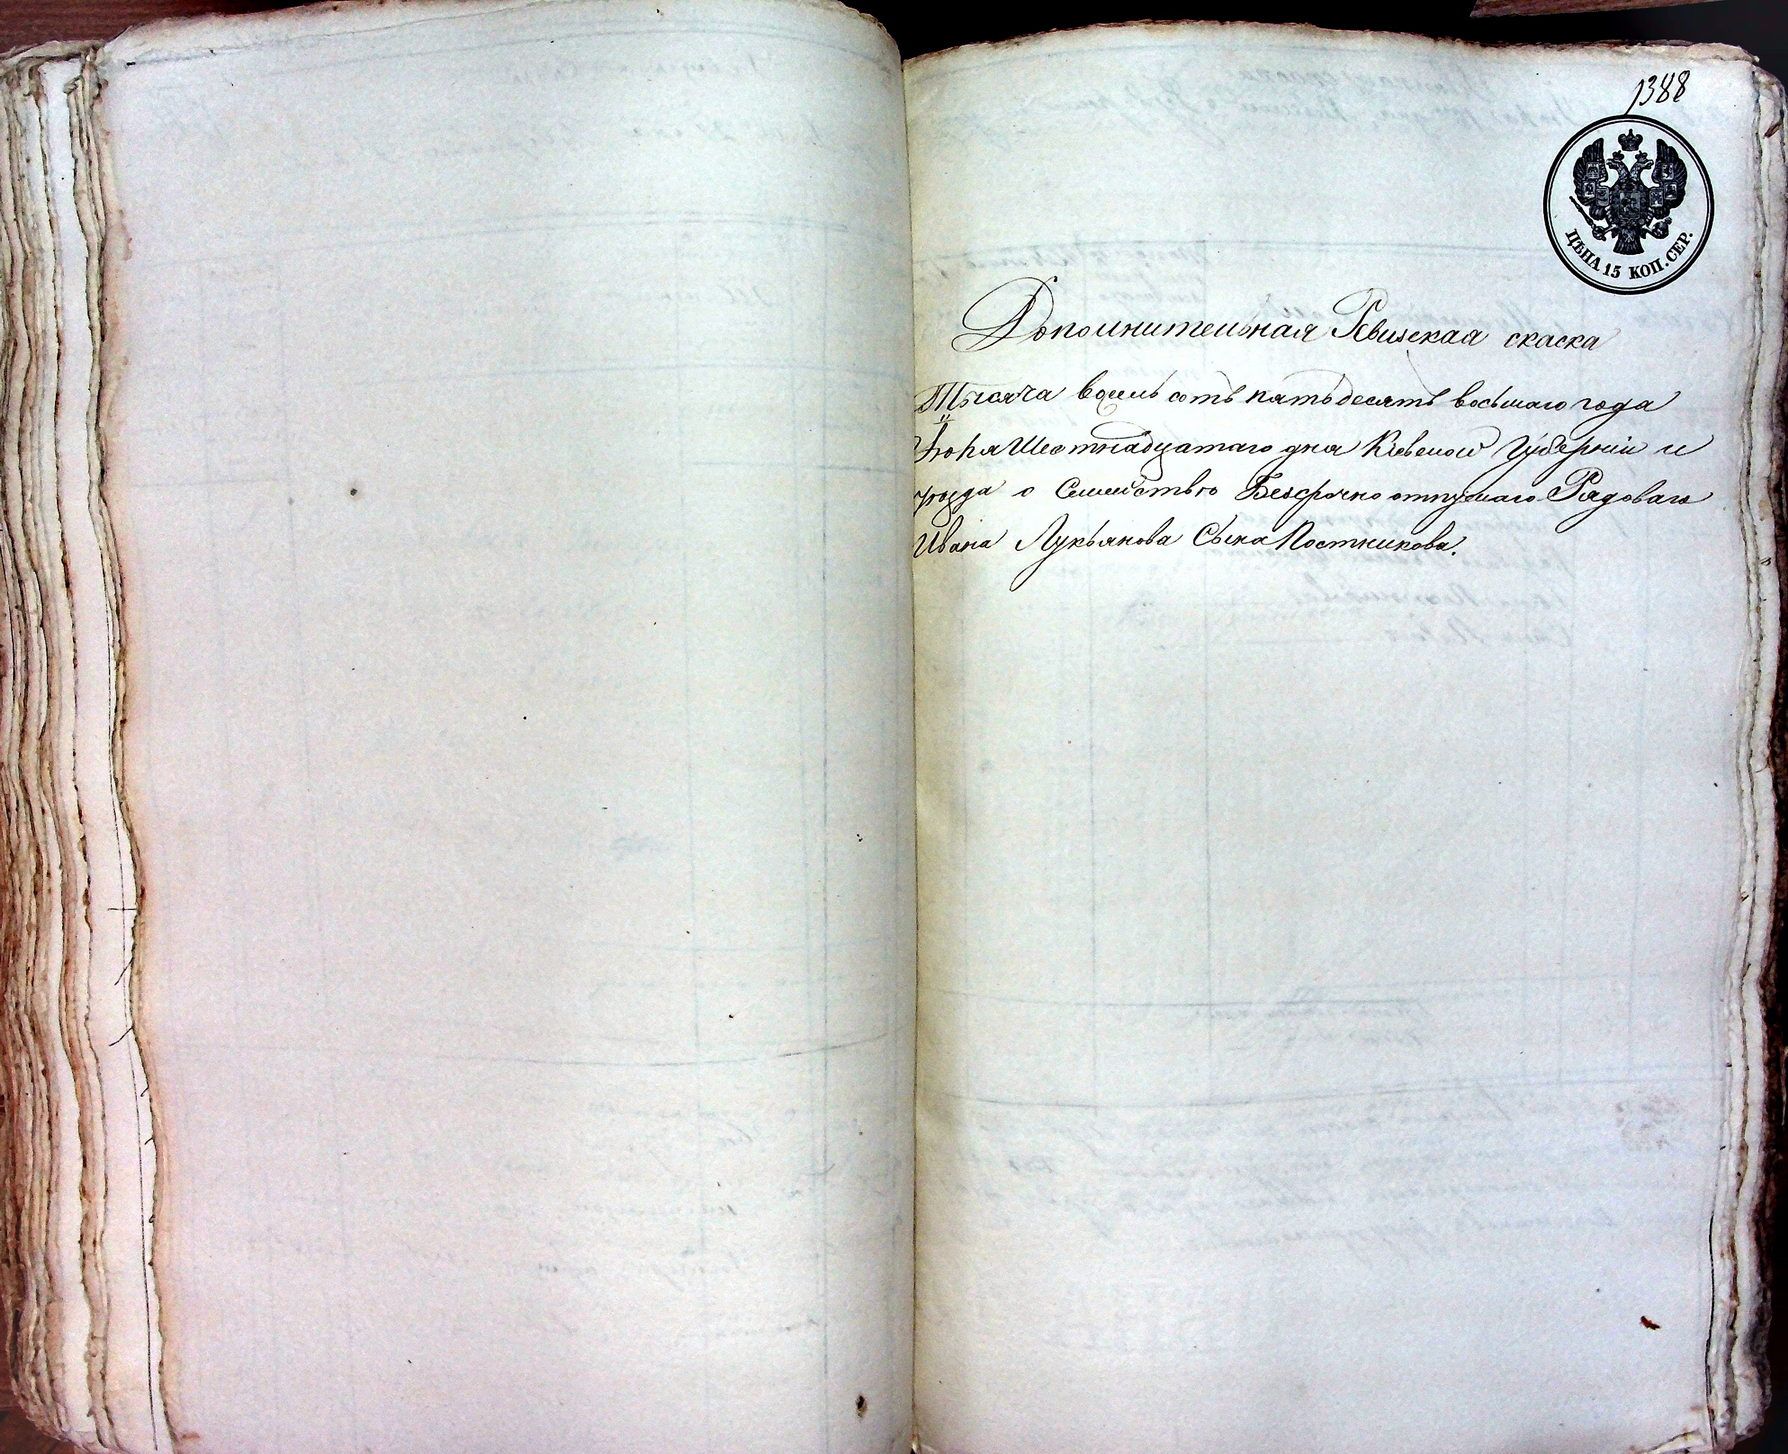 1388
ЦѢНА 15 КОП. СЕР.
Дополнительная Ревизская скаска
Тысяча восемь сотъ пятьдесятъ восьмаго года
Шестнадцатаго дня Кіевской Губерніи и
уѣзда о Семействѣ Безсрочно отпускнаго Рядоваго
Ивана Лукьянова Сына Постникова.